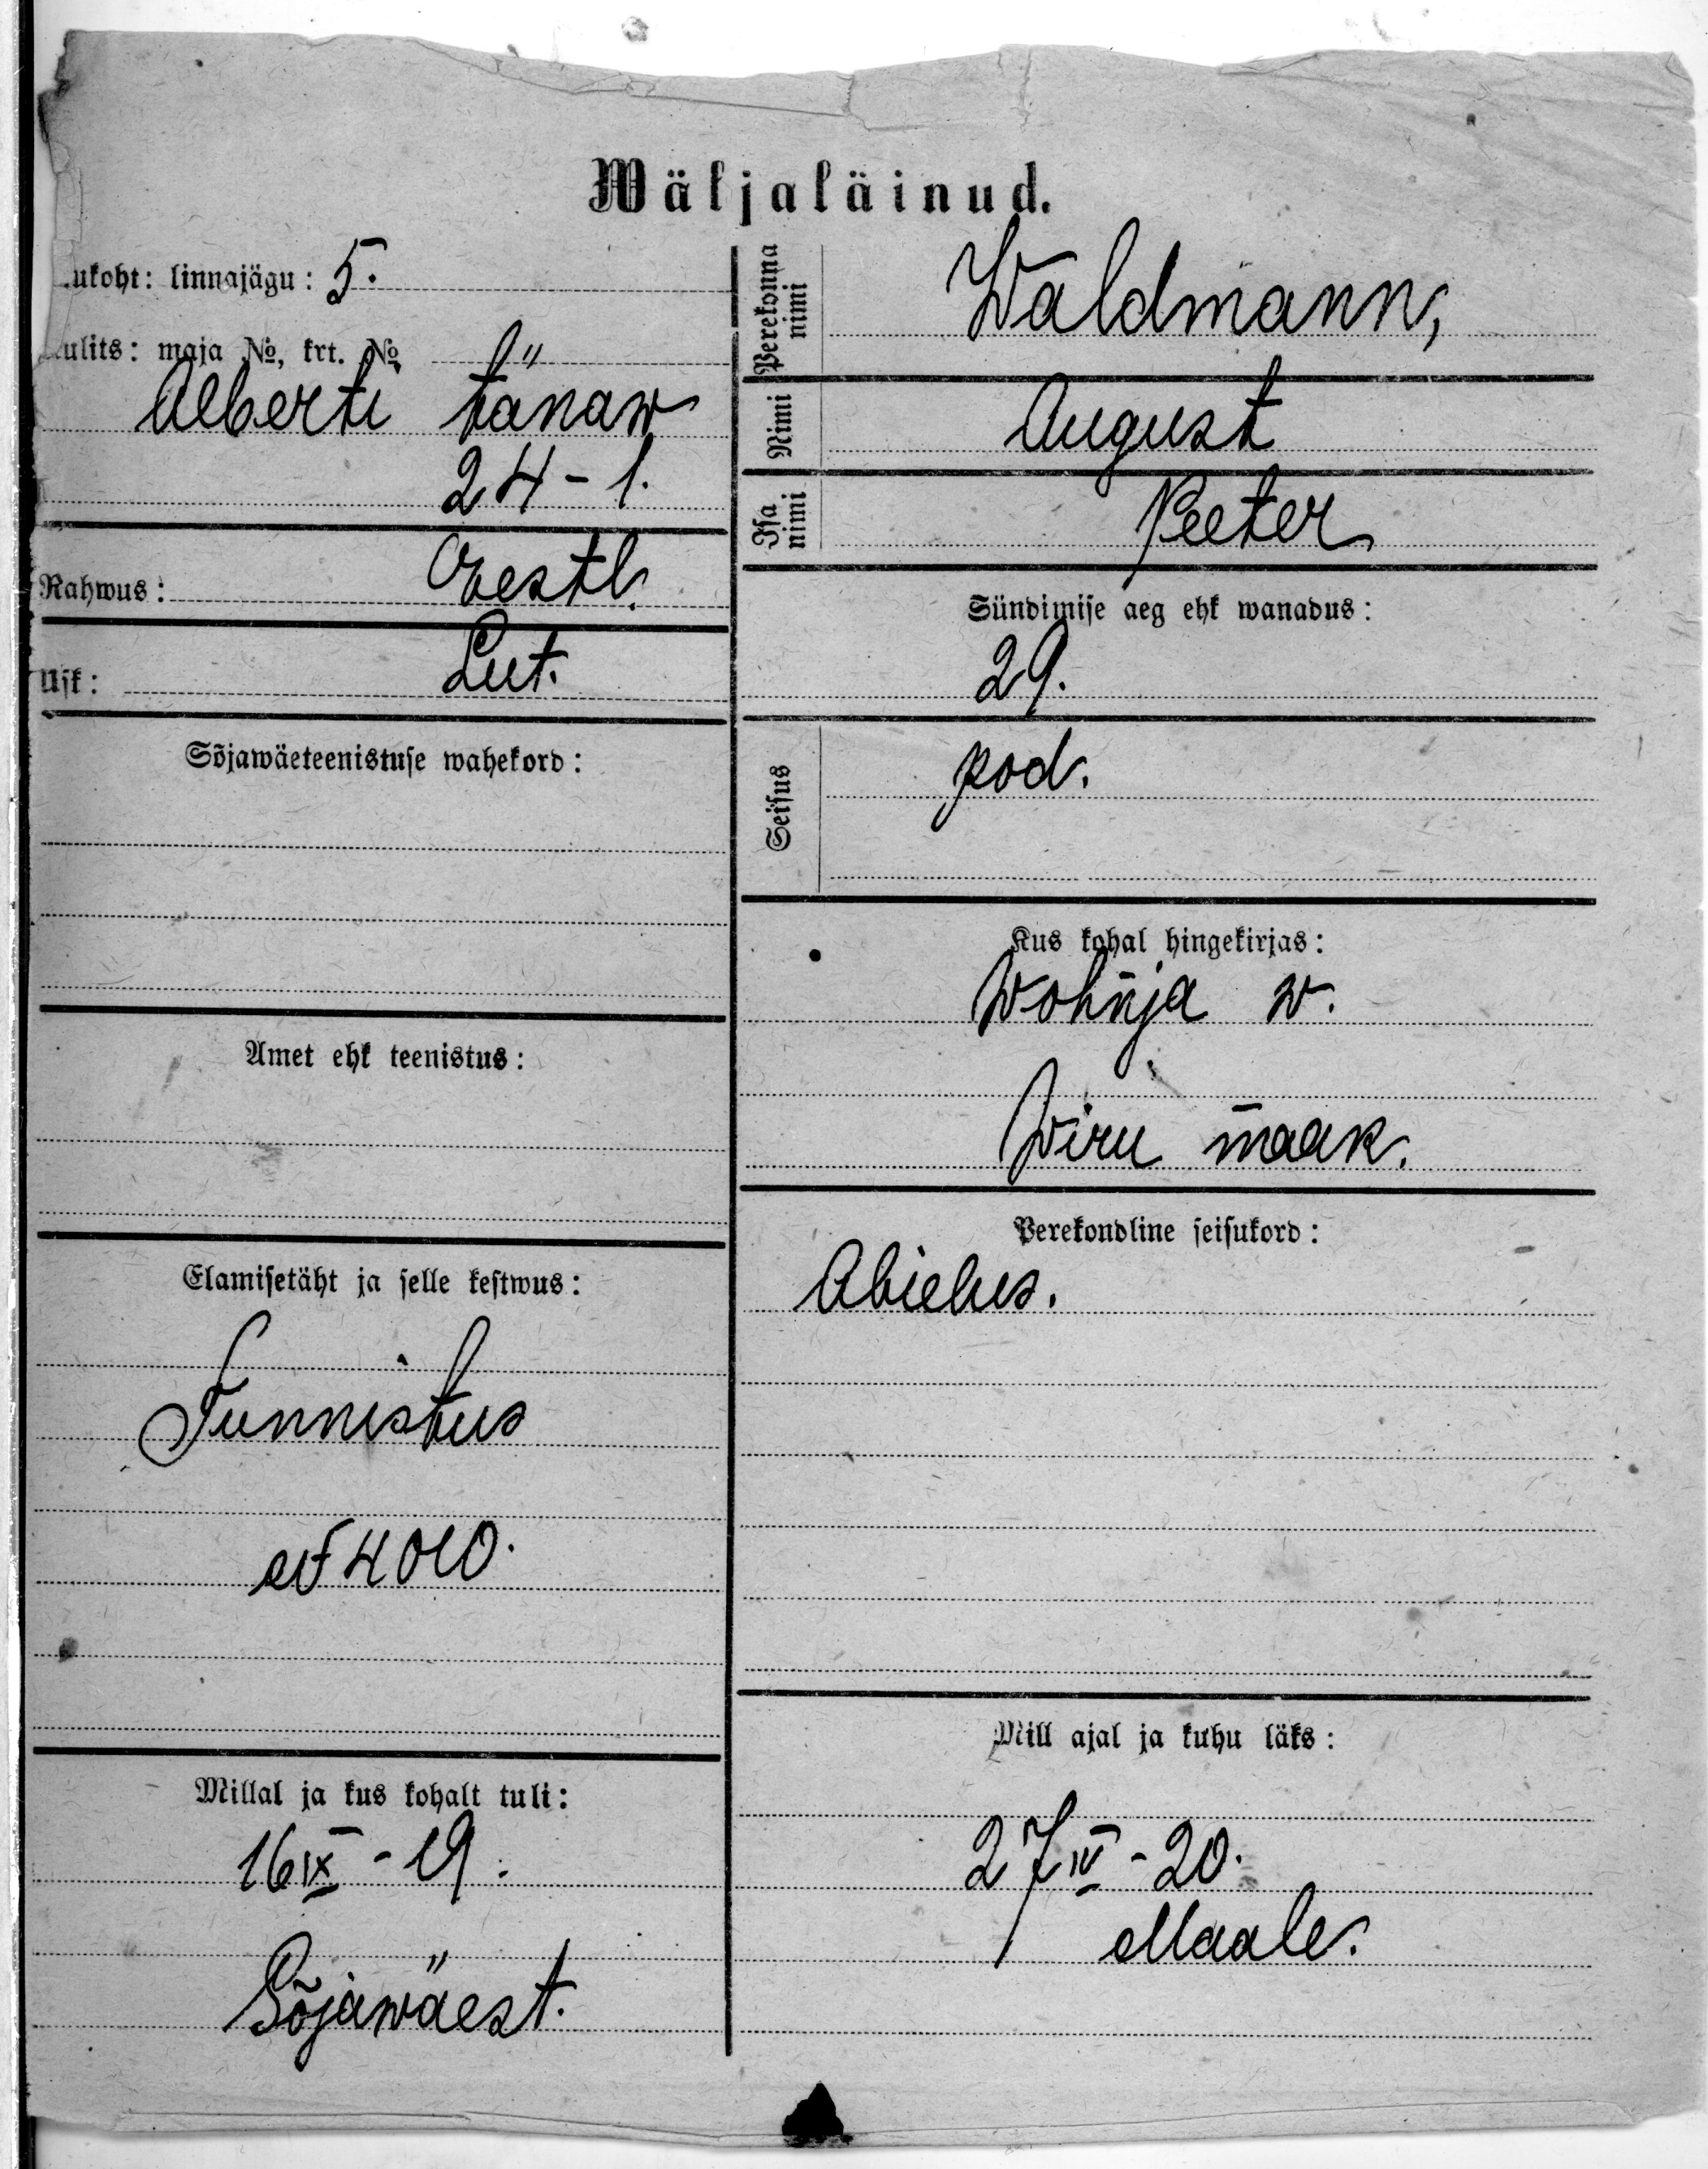 Wäljaläinud.
ukoht: linnajägu: 5.
ulits: maja №, krt. №
Alberti tänaw
24-1.
Rahwus: Eestl.
Usk: Lut.
Sõjawäeteenistuse wahekord:
Amet ehk teenistus:
Elamisetäht ja selle kestwus:
Tunnistus
№ 4010.
Millal ja kus kohalt tuli:
16 IX - 19.
Sõjawäest.
Perekonna nimi Waldmann,
Nimi August
Isa nimi Peeter
Sündimise aeg ehk wanadus:
29.
Seisus pod.
Kus kohal hingekirjas:
Wohnja w.
Wiru maak.
Perekondline seisukord:
Abielus.
Mill ajal ja kuhu läks:
27 IV - 20.
Maale.